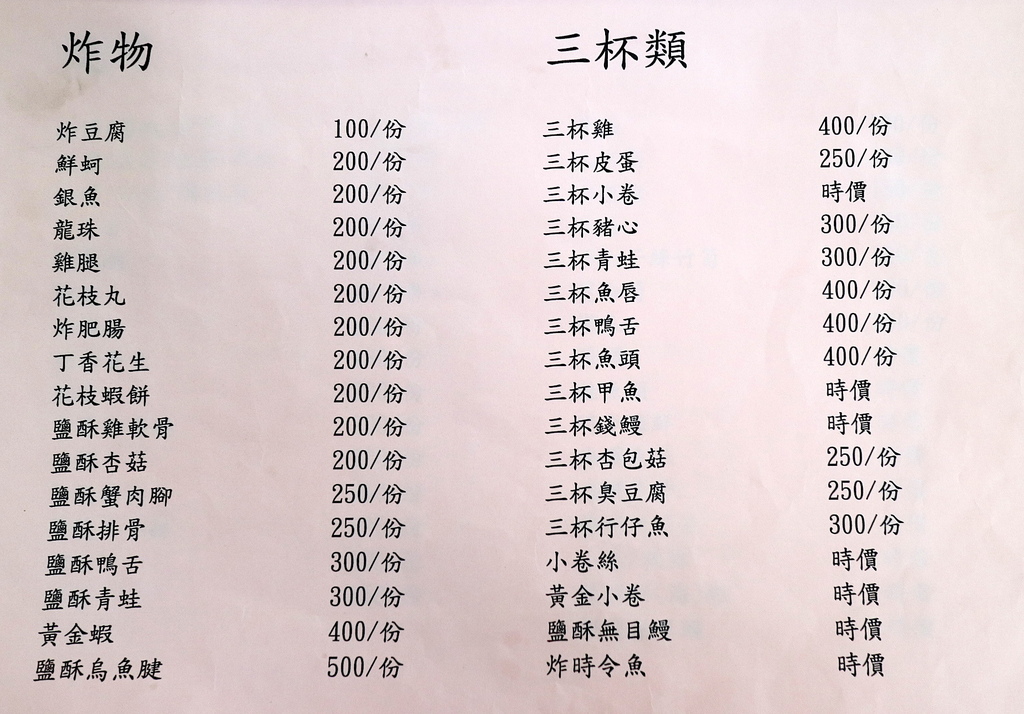 炸物
炸豆腐 100/份
鮮蚵 200/份
銀魚 200/份
龍珠 200/份
雞腿 200/份
花枝丸 200/份
炸肥腸 200/份
丁香花生 200/份
花枝蝦餅 200/份
鹽酥雞軟骨 200/份
鹽酥杏菇 200/份
鹽酥蟹肉腳 250/份
鹽酥排骨 250/份
鹽酥鴨舌 300/份
鹽酥青蛙 300/份
黃金蝦 400/份
鹽酥烏魚腱 500/份
三杯類
三杯雞 400/份
三杯皮蛋 250/份
三杯小卷 時價
三杯豬心 300/份
三杯青蛙 300/份
三杯魚唇 400/份
三杯鴨舌 400/份
三杯魚頭 400/份
三杯甲魚 時價
三杯錢鰻 時價
三杯杏包菇 250/份
三杯臭豆腐 250/份
三杯行仔魚 300/份
小卷絲 時價
黃金小卷 時價
鹽酥無目鰻 時價
炸時令魚 時價